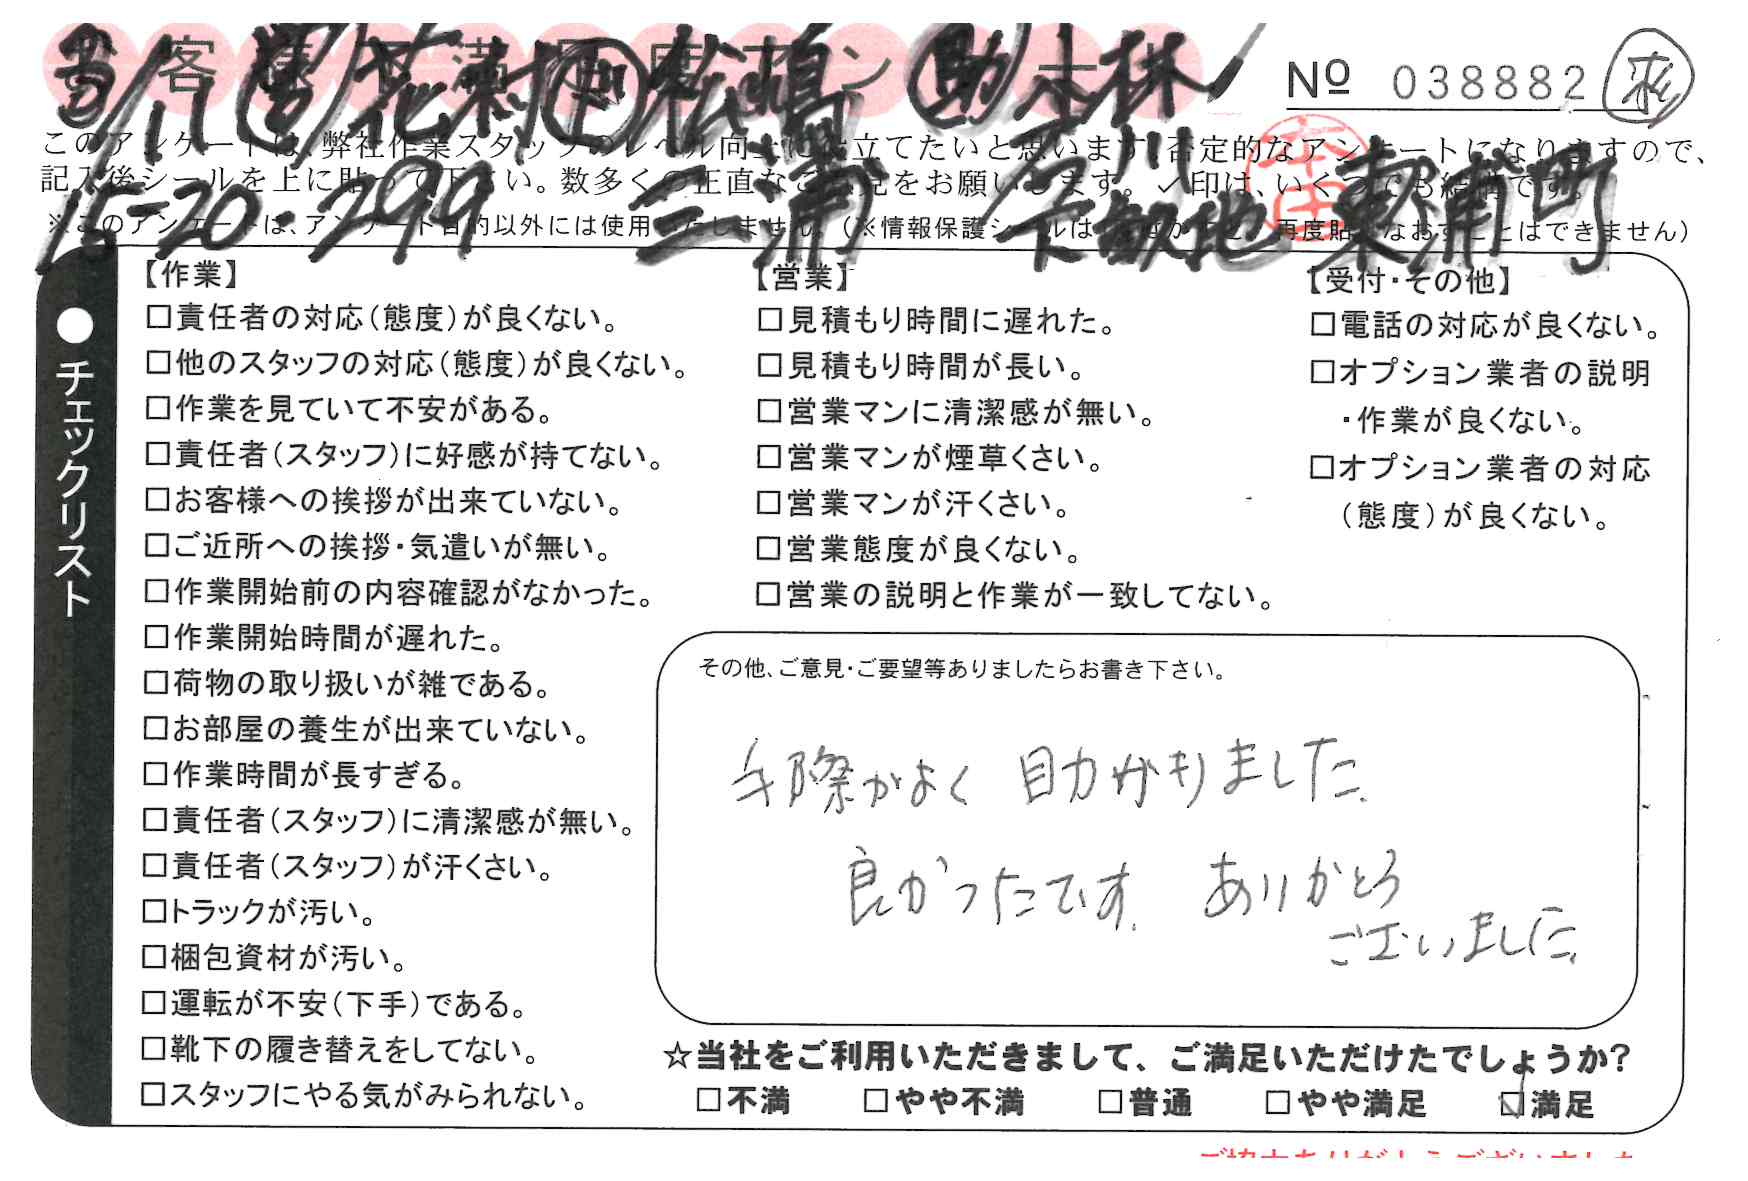 3/11 営 花村 作 松嶋 助 本林
No 038882
15-20-299 三浦
東浦町
このアンケートは、弊社作業スタッフのレベル向上に役立てたいと思います。否定的なアンケートになりますので、
記入後シールを上に貼って下さい。数多くの正直なご意見をお願いします。✓印は、いくつでも結構です。
●チェックリスト
【作業】
□責任者の対応(態度)が良くない。
□他のスタッフの対応(態度)が良くない。
□作業を見ていて不安がある。
□責任者(スタッフ)に好感が持てない。
□お客様への挨拶が出来ていない。
□ご近所への挨拶・気遣いが無い。
□作業開始前の内容確認がなかった。
□作業開始時間が遅れた。
□荷物の取り扱いが雑である。
□お部屋の養生が出来ていない。
□作業時間が長すぎる。
□責任者(スタッフ)に清潔感が無い。
□責任者(スタッフ)が汗くさい。
□トラックが汚い。
□梱包資材が汚い。
□運転が不安(下手)である。
□靴下の履き替えをしてない。
□スタッフにやる気がみられない。
【営業】
□見積もり時間に遅れた。
□見積もり時間が長い。
□営業マンに清潔感が無い。
□営業マンが煙草くさい。
□営業マンが汗くさい。
□営業態度が良くない。
□営業の説明と作業が一致してない。
【受付・その他】
□電話の対応が良くない。
□オプション業者の説明
・作業が良くない。
□オプション業者の対応
(態度)が良くない。
その他、ご意見・ご要望等ありましたらお書き下さい。
手際がよく 助かりました。
良かったです。ありがとう
ございました。
☆当社をご利用いただきまして、ご満足いただけたでしょうか?
□不満 □やや不満 □普通 □やや満足 ☑満足
ご協力ありがとうございました